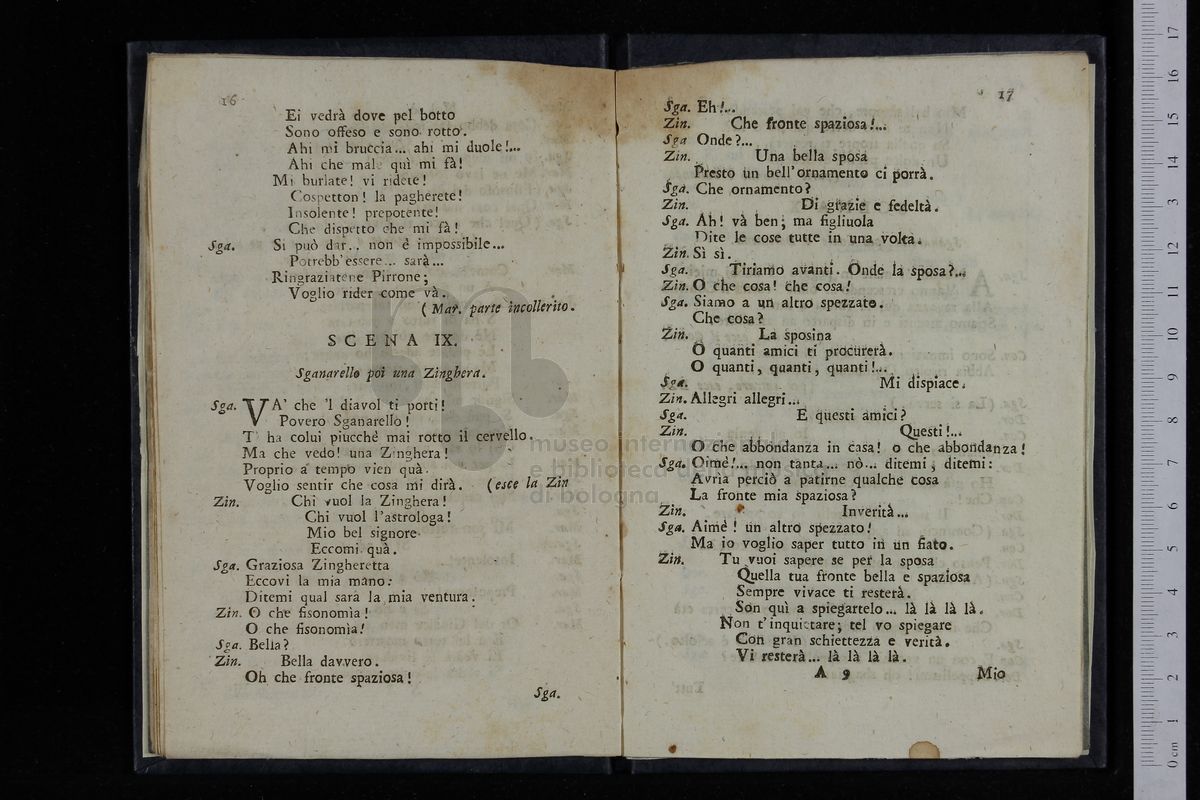 16
Ei vedrà dove pel botto
Sono offeso e sono rotto.
Ahi mi bruccia... ahi mi duole!...
Ahi che male quì mi fà!
Mi burlate! vi ridete!
Cospetton! la pagherete!
Insolente! prepotente!
Che dispetto che mi fà!
Sga. Si può dar.. non è impossibile...
Potrebb'essere... sarà...
Ringraziatene Pirrone;
Voglio rider come và.
( Mar. parte incollerito.
SCENA IX.
Sganarello poi una Zinghera.
Sga. VA' che 'l diavol ti porti!
Povero Sganarello!
T' ha colui piucchè mai rotto il cervello.
Ma che vedo! una Zinghera!
Proprio a tempo vien quà.
Voglio sentir che cosa mi dirà. (esce la Zin
Zin. Chi vuol la Zinghera!
Chi vuol l'astrologa!
Mio bel signore
Eccomi quà.
Sga. Graziosa Zingheretta
Eccovi la mia mano:
Ditemi qual sarà la mia ventura.
Zin. O che fisonomìa!
O che fisonomìa!
Sga. Bella?
Zin. Bella davvero.
Oh che fronte spaziosa!
Sga.
17
Sga. Eh!...
Zin. Che fronte spaziosa!...
Sga Onde?...
Zin. Una bella sposa
Presto un bell'ornamento ci porrà.
Sga. Che ornamento?
Zin. Di grazie e fedeltà.
Sga. Ah! và ben; ma figliuola
Dite le cose tutte in una volta.
Zin. Sì sì.
Sga. Tiriamo avanti. Onde la sposa?...
Zin. O che cosa! che cosa!
Sga. Siamo a un altro spezzato.
Che cosa?
Zin. La sposina
O quanti amici ti procurerà.
O quanti, quanti, quanti!...
Sga. Mi dispiace.
Zin. Allegri allegri...
Sga. E questi amici?
Zin. Questi!...
O che abbondanza in casa! o che abbondanza!
Sga. Oimè!... non tanta... nò... ditemi, ditemi:
Avria perciò a patirne qualche cosa
La fronte mia spaziosa?
Zin. Inverità...
Sga. Aimè! un altro spezzato!
Ma io voglio saper tutto in un fiato.
Zin. Tu vuoi sapere se per la sposa
Quella tua fronte bella e spaziosa
Sempre vivace ti resterà.
Son quì a spiegartelo... là là là là.
Non t'inquietare; tel vo spiegare
Con gran schiettezza e verità.
Vi resterà... là là là là.
A 9 Mio
museo internazionale
e biblioteca della musica
di bologna
0 cm 1 2 3 4 5 6 7 8 9 10 11 12 13 14 15 16 17